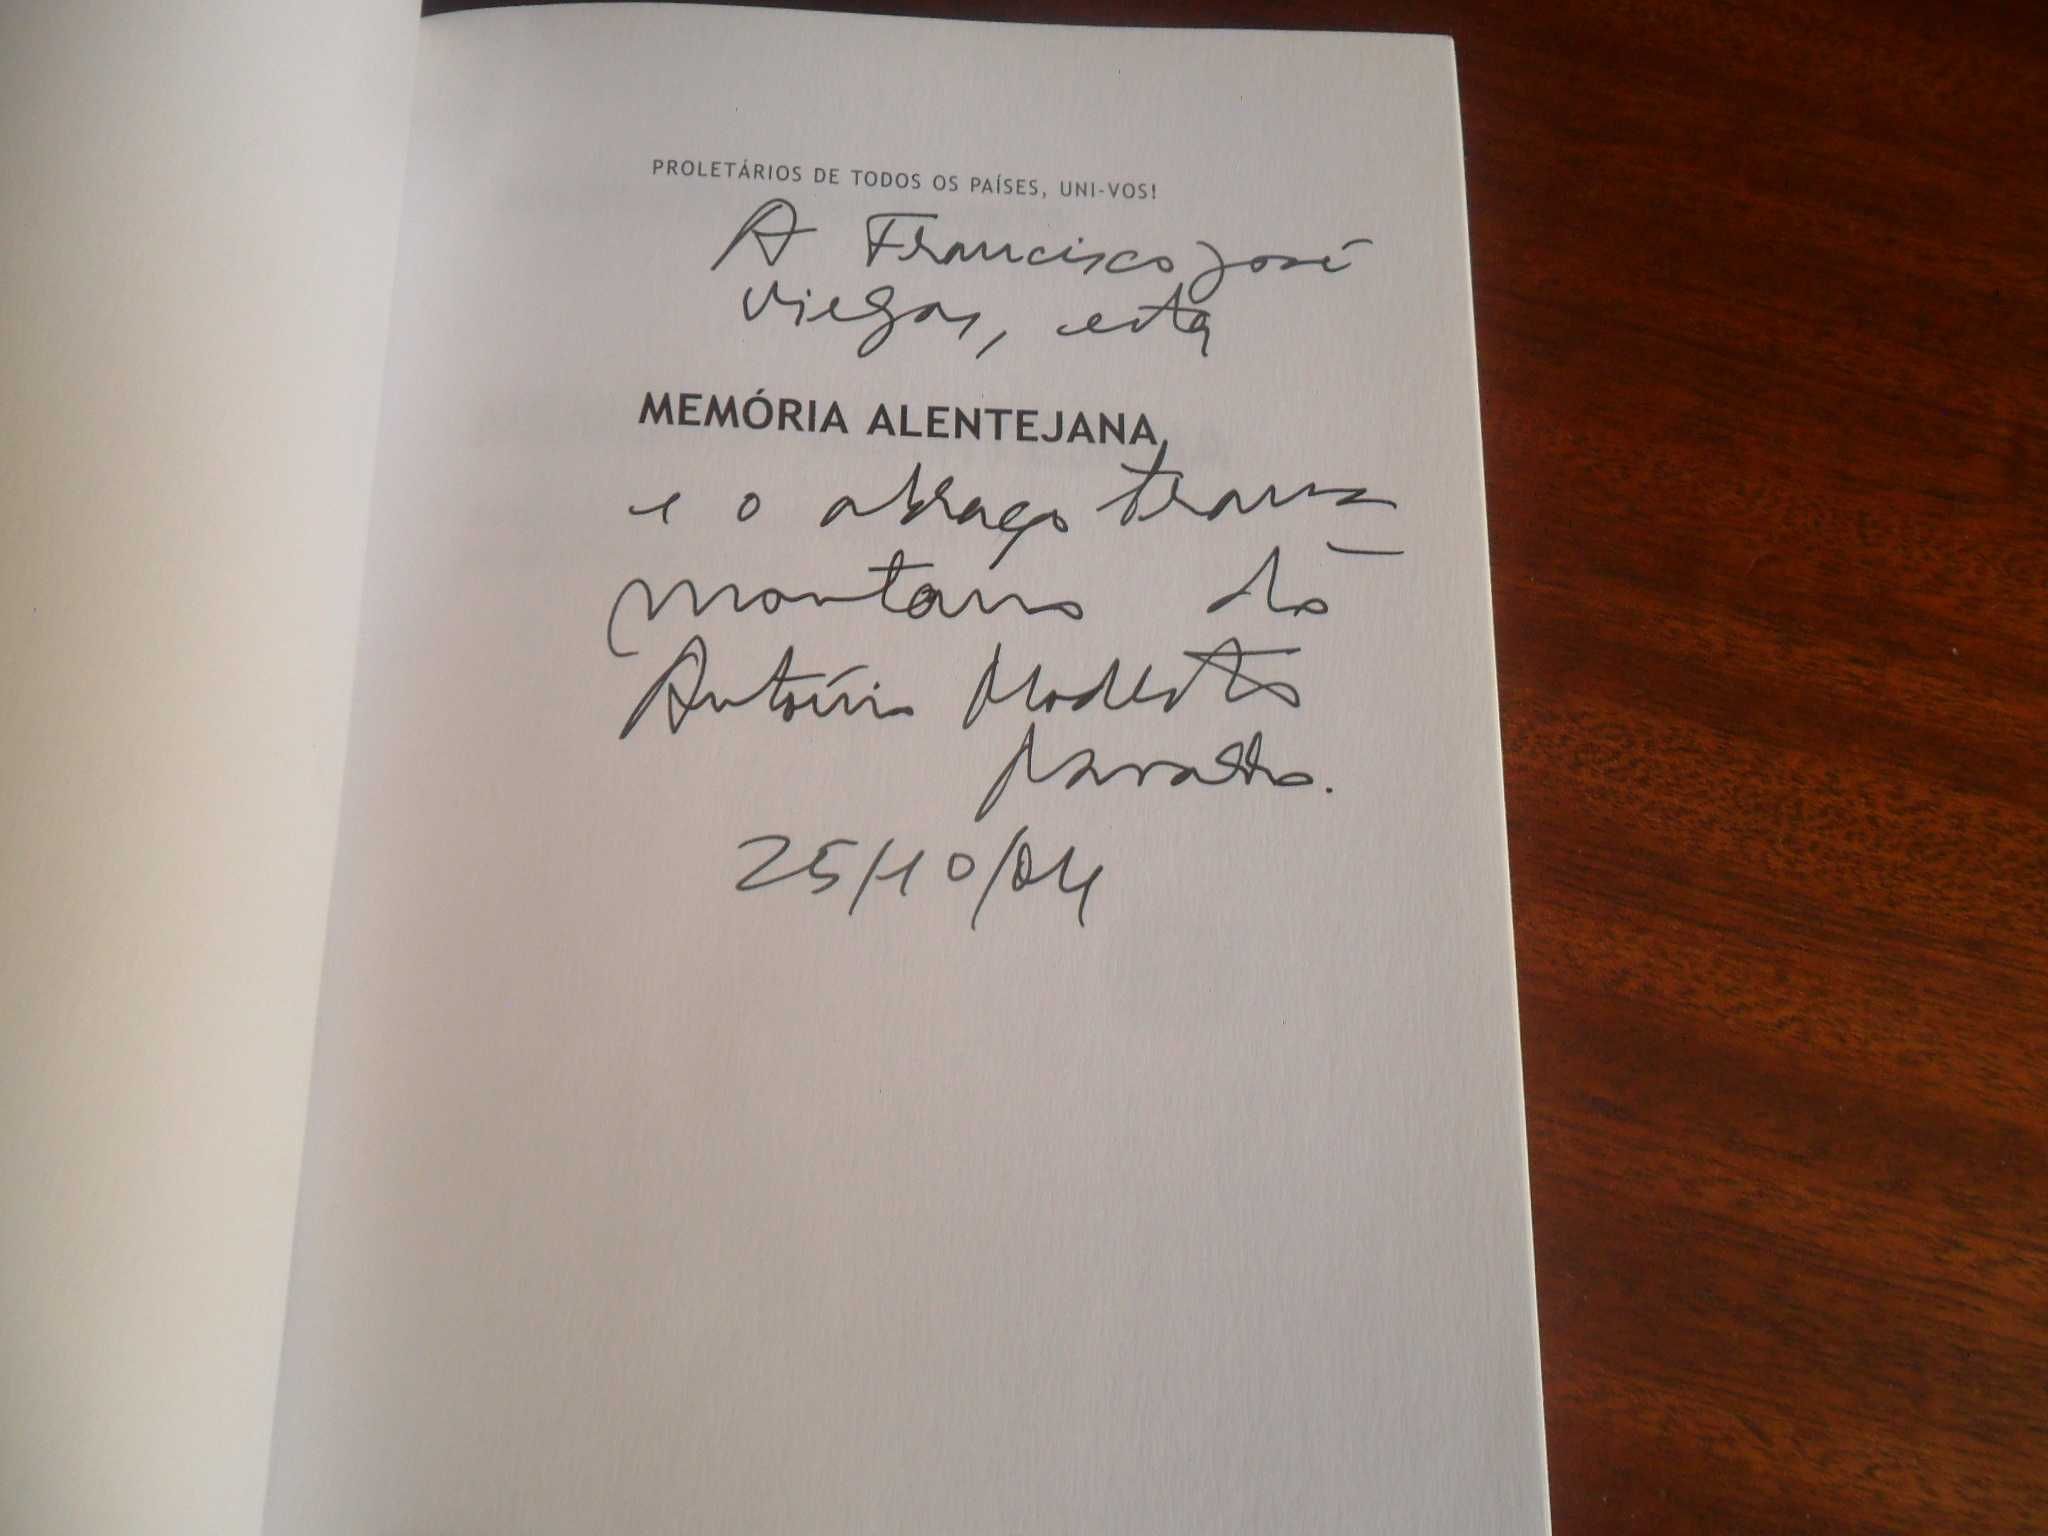 PROLETÁRIOS DE TODOS OS PAÍSES, UNI-VOS!
A Francisco José
Viegas, esta
MEMÓRIA ALENTEJANA,
e o abraço trans-
montano do
António Modesto
Navarro.
25/10/04